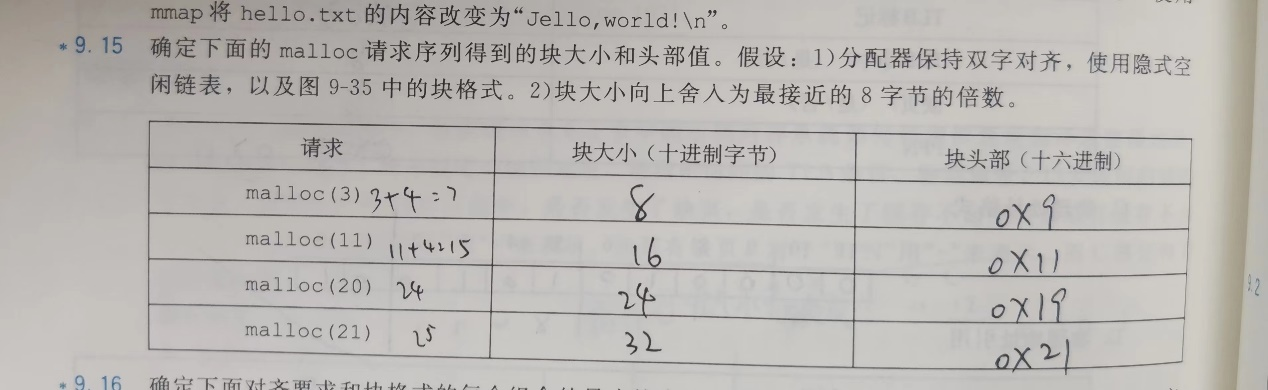 mmap 将 hello.txt 的内容改变为“Jello,world!\n”。
*9.15 确定下面的 malloc 请求序列得到的块大小和头部值。假设：1)分配器保持双字对齐，使用隐式空
闲链表，以及图 9-35 中的块格式。2)块大小向上舍入为最接近的 8 字节的倍数。
请求 块大小（十进制字节） 块头部（十六进制）
malloc(3) 3+4=7 8 0X9
malloc(11) 11+4=15 16 0X11
malloc(20) 24 24 0X19
malloc(21) 25 32 0X21
9.2
*9.16